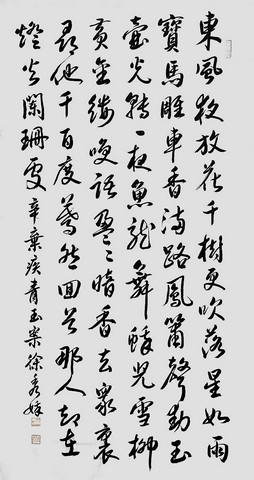 東風夜放花千樹更吹落星如雨
寶馬雕車香滿路鳳簫聲動玉
壺光轉一夜魚龍舞蛾兒雪柳
黃金縷笑語盈〻暗香去眾裏
尋他千百度驀然回首那人卻在
燈火闌珊處 辛棄疾青玉案徐秀